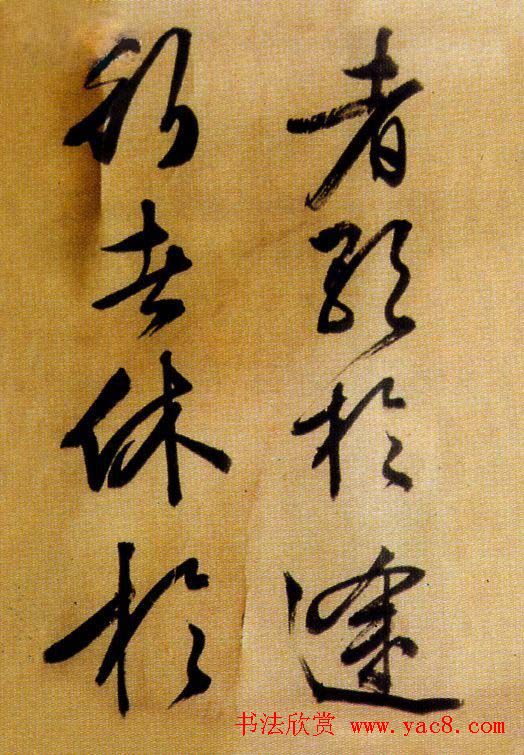 者歌於途
行者休於
书法欣赏 www.yac8.com